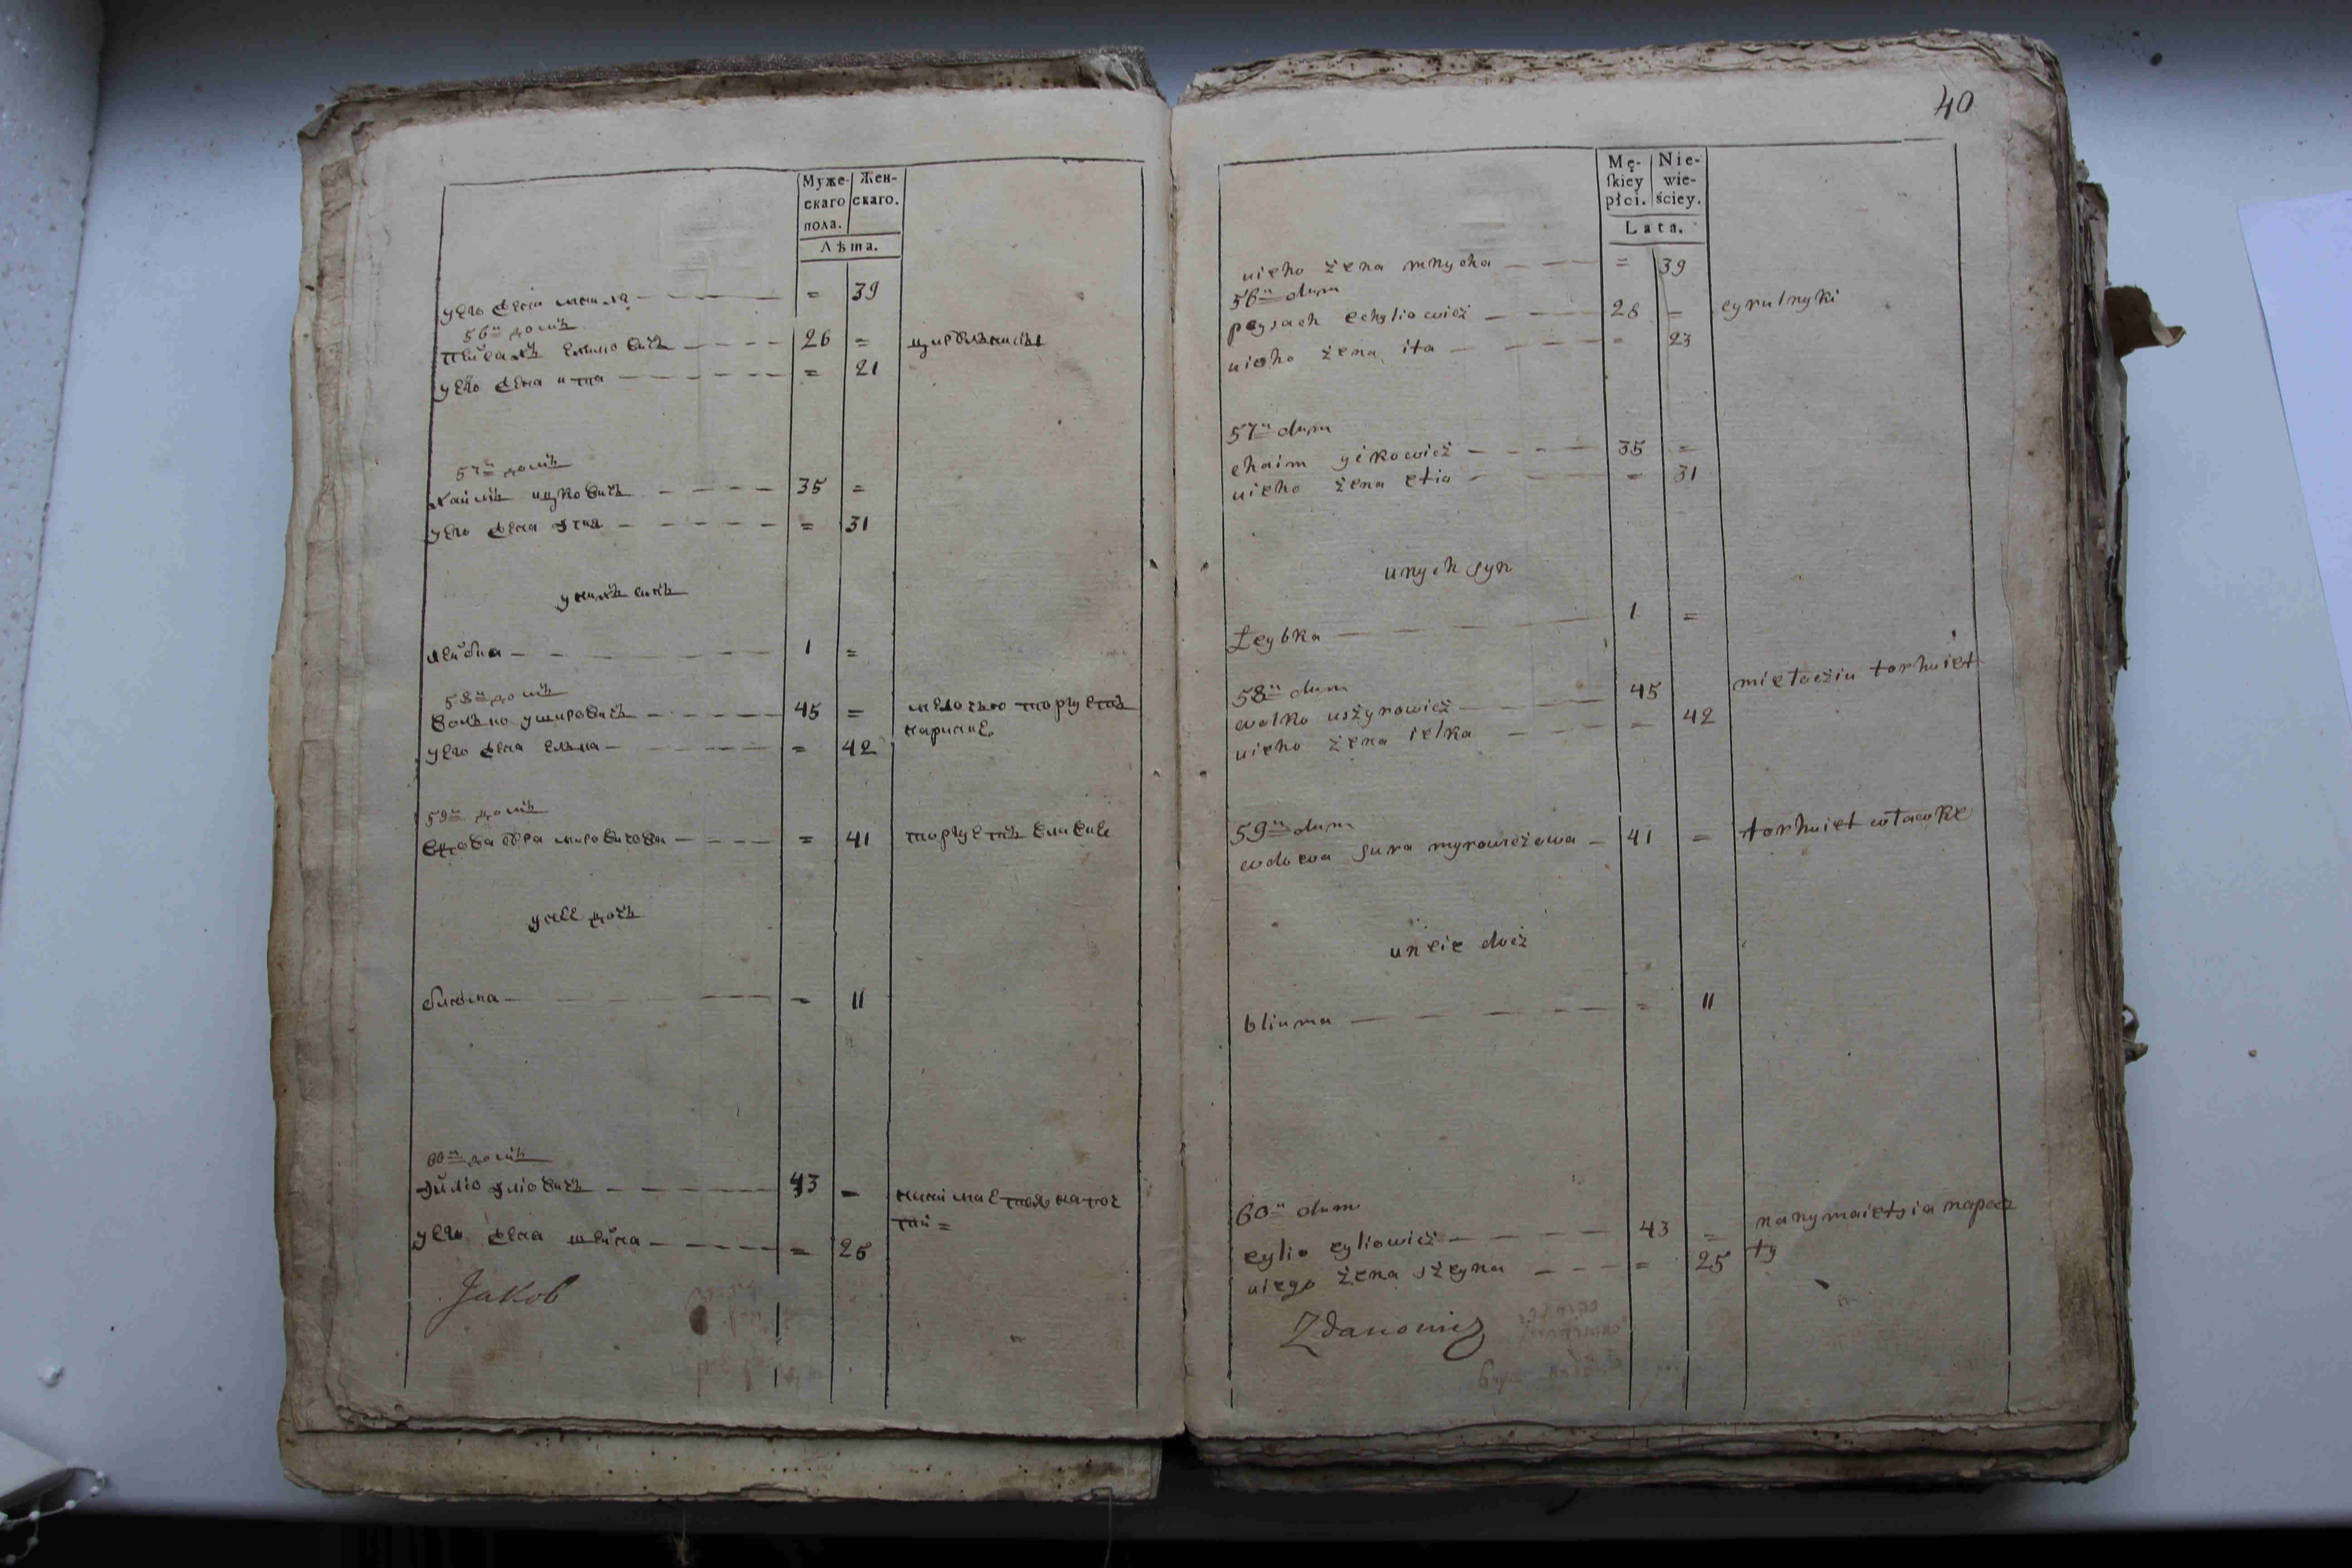 Муже-
скаго
пола.
Жен-
скаго.
Лѣта.
уего жена = 39
56й домъ
Пейсахъ 26 =
уего жена итта = 21
57й домъ
хаимъ ицковичъ 35 =
уего жена этя = 31
унихъ синъ
лейбка 1 =
58й домъ
волько ушировичъ 45 = мелочью торгуетъ
уего жена елька = 42
59й домъ
вдова сура мировичова = 41 торгуетъ влавке
унее дочъ
блюма = 11
60й домъ
эйлiо элiовичъ 43 = нанимаетця напоч
той =
уего жена шейна = 25
Jakob
40
Mę-
ſkiey
płci.
Nie-
wie-
ściey.
Lata.
uieho żena mnycha = 39
56й dum
peysach echyliowicż 26 = cyrulnyki
uieho żena ita = 23
57й dum
chaim yckowicż 35 =
uieho żena etia = 31
unych syn
Leybka 1 =
58й dum
wolko uszyrowicż 45 miełocżiu torhuiet
uieho żena ielka = 42
59й dum
wdowa sura myrowicżowa 41 = torhuiet włàwke
uneie docż
bliuma = 11
60й dum
eylio eyliowicż 43 = nanymaietsia napocz
uiego żena szeyna = 25 ty
Zdanowicz